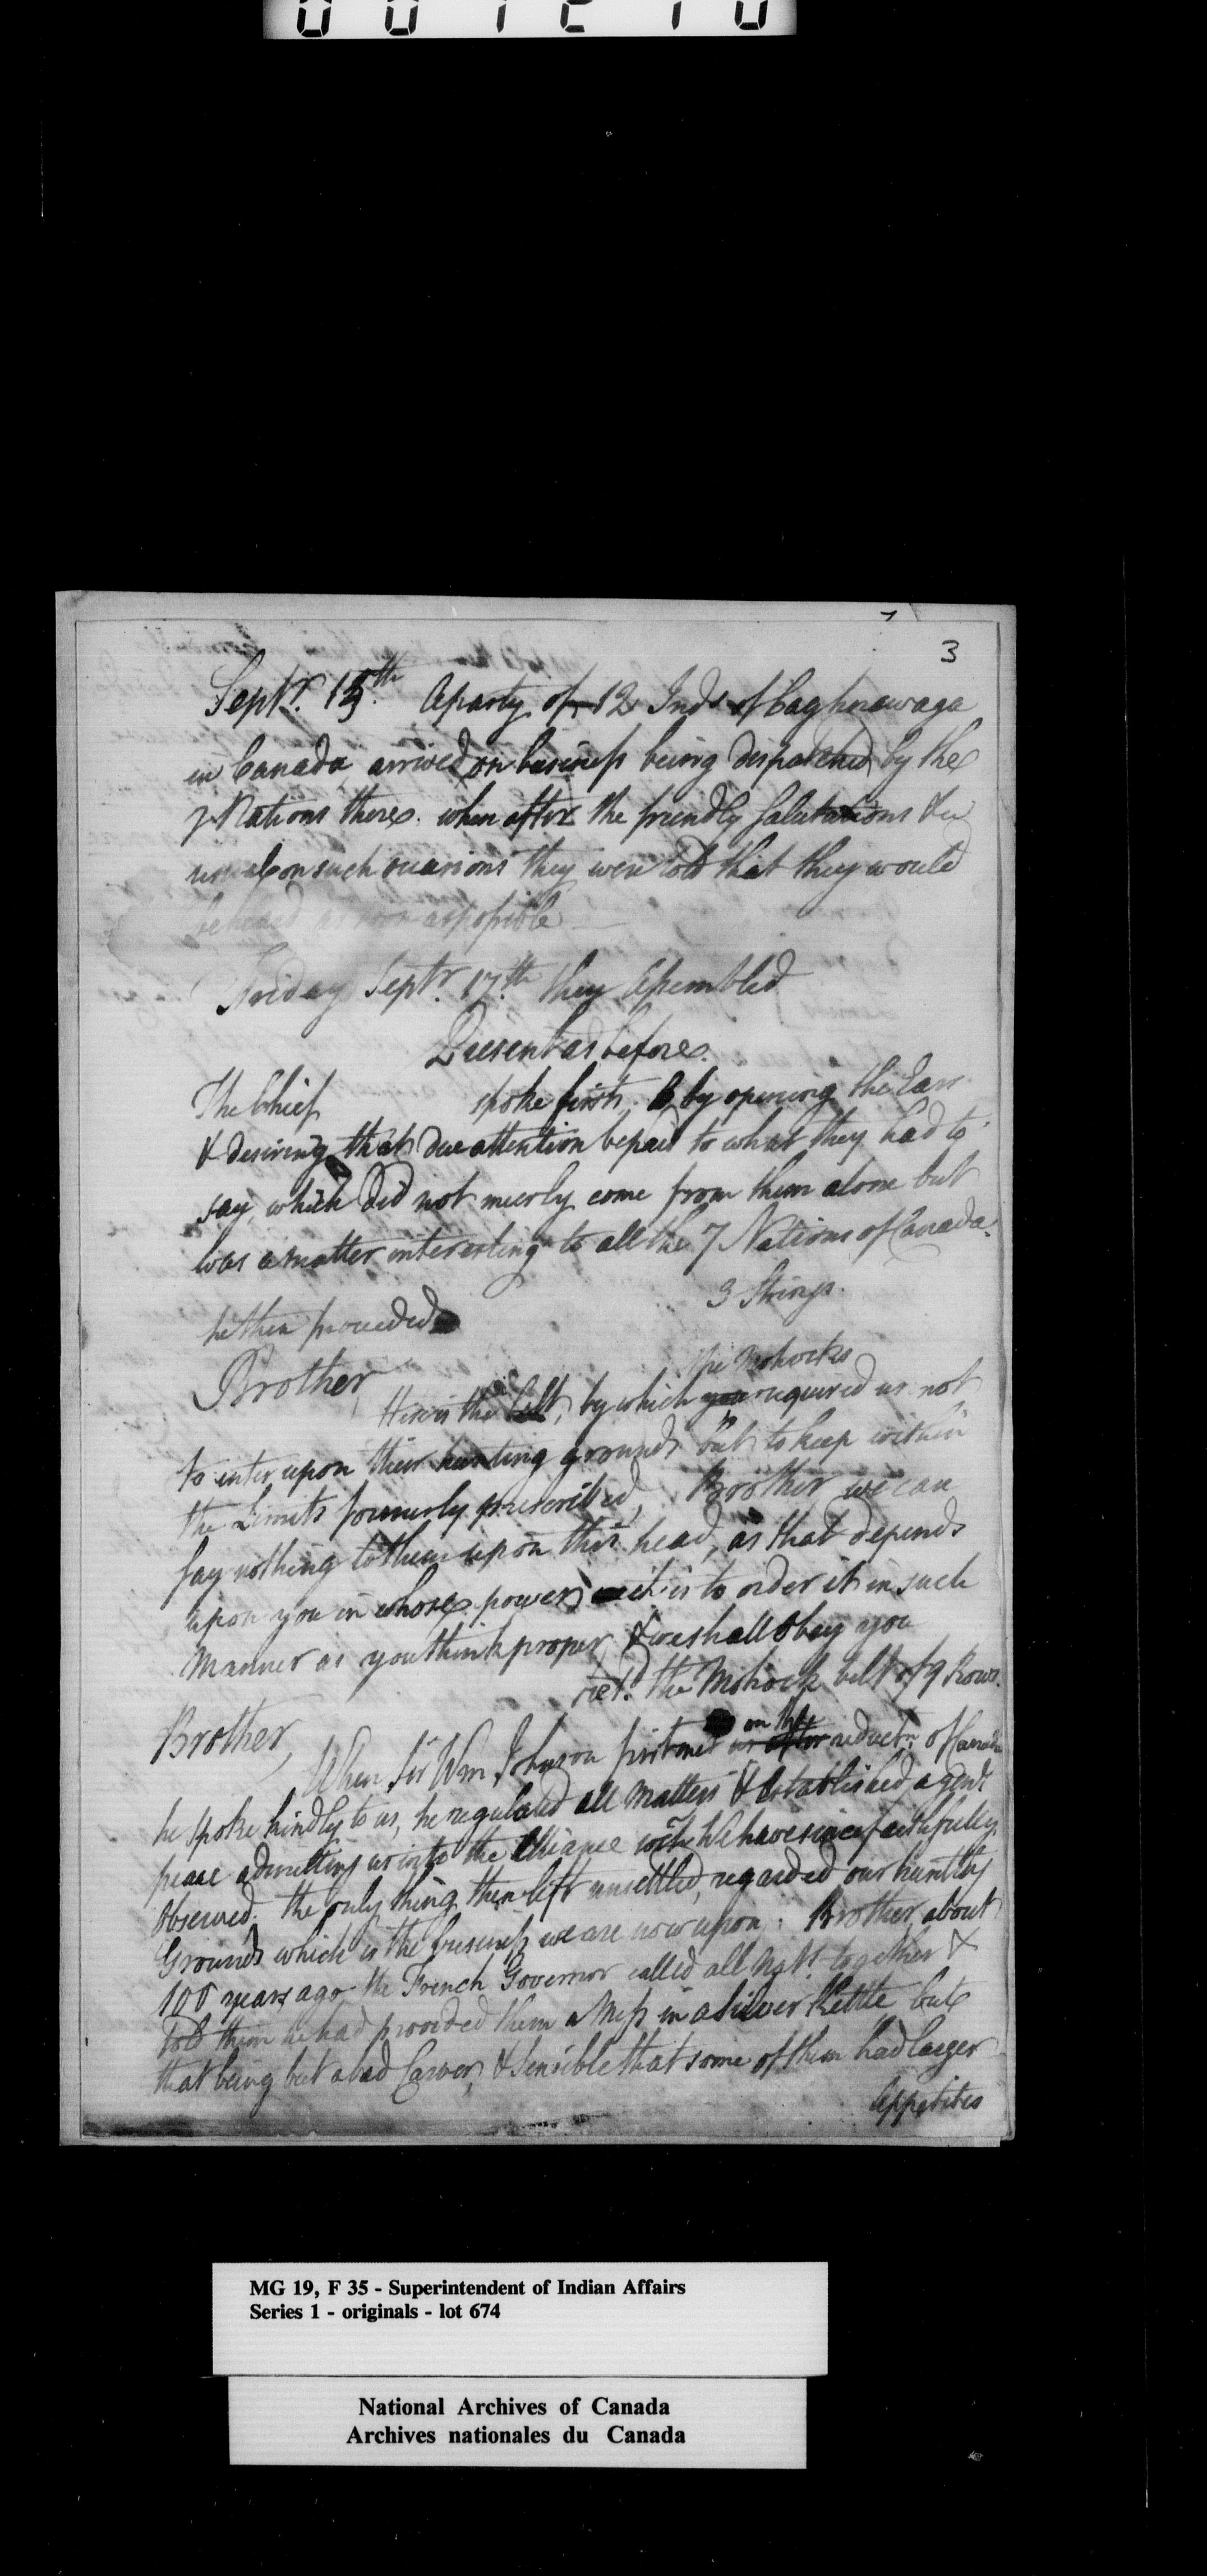 001210
3
Septr. 15th. A party of 12 Inds. of Caghnawaga
in Canada, arrived on business being dispatched by the
7 Nations there. when after the friendly Salutations &ca
usual on such occasions they were told that they would
be heard as soon as possible
Friday Septr. 17th they Assembled
Present as before.
The Chief spoke first, by opening the Ears
& desiring that due attention be paid to what they had to
say, which did not meerly come from them alone but
was a matter interesting to all the 7 Nations of Canada.
3 Strings.
he then proceeded
Brother,
the Mohocks
Here is the belt, by which you required us not
to enter upon their hunting grounds but to keep within
the Limits formerly prescribed, Brother we can
say nothing to them upon this head, as that depends
upon you in whose power it is to order it in such
Manner as you think proper, & we shall Obey you
ret.d the Mohock belt of 9 Rows.
Brother,
on the
When Sir Wm. Johnson first met us after reductn. of Canada
he spoke kindly to us, he regulated all Matters & Established a good
peace admitting us into the Alliance wch. We have since faithfully
Observed. the only thing then left unsettled, regarded our hunting
Grounds which is the business we are now upon; Brother, about
100 years ago the French Governor called all Nats. together &
told them he had provided them a Mess in a Silver Kettle but
that being but a bad Carver, & Sensible that some of them had larger
Appetites
MG 19, F 35 - Superintendent of Indian Affairs
Series 1 - originals - lot 674
National Archives of Canada
Archives nationales du Canada